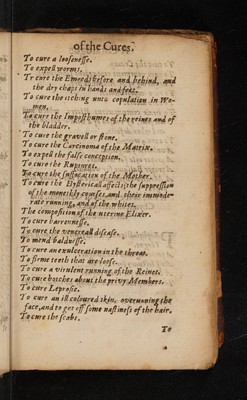 of the Cures.
To cure a loosenesse.
To expell worms.
To cure the Emerods before and behind, and
the dry chaps in hands and feet.
To cure the itching unto copulation in Wo-
men.
To cure the Imposthumes of the reines and of
the bladder.
To cure the gravell or stone.
To cure the Carcinoma of the Matrix.
To expell the false conception.
To cure the Ruptures.
To cure the suffocation of the Mother.
To cure the Hystericall affects; the suppression
of the monethly courses, and their immode-
rate running, and of the whites.
The composition of the uterine Elixer.
To cure barrennesse.
To cure the venereall disease.
To mend baldnesse.
To cure an exulceration in the throat.
To firme teeth that are loose.
To cure a virulent running of the Reines.
To cure botches about the privy Members.
To cure Leprosie.
To cure an ill coloured skin, overrunning the
face, and to get off some nastines of the hair.
To cure the scabs.
To